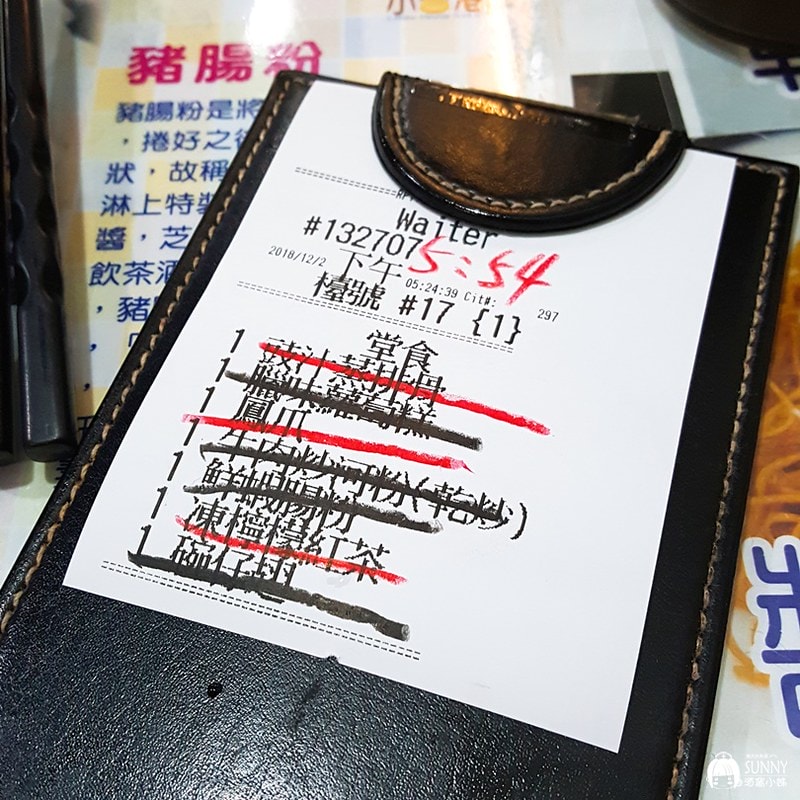 豬腸粉
豬腸粉是將
，捲好之後
狀，故稱
淋上特製
醬，芝
飲茶酒
，豬
Waiter
#132707
5:54
2018/12/2 下午 05:24:39 Cit#: 297
檯號 #17 {1}
堂食
1 豉汁蒸排骨
1 臘味蘿蔔糕
1 鳳爪
1 牛肉炒河粉(乾炒)
1 鮮蝦腸粉
1 凍檸檬紅茶
1 碗仔翅
SUNNY